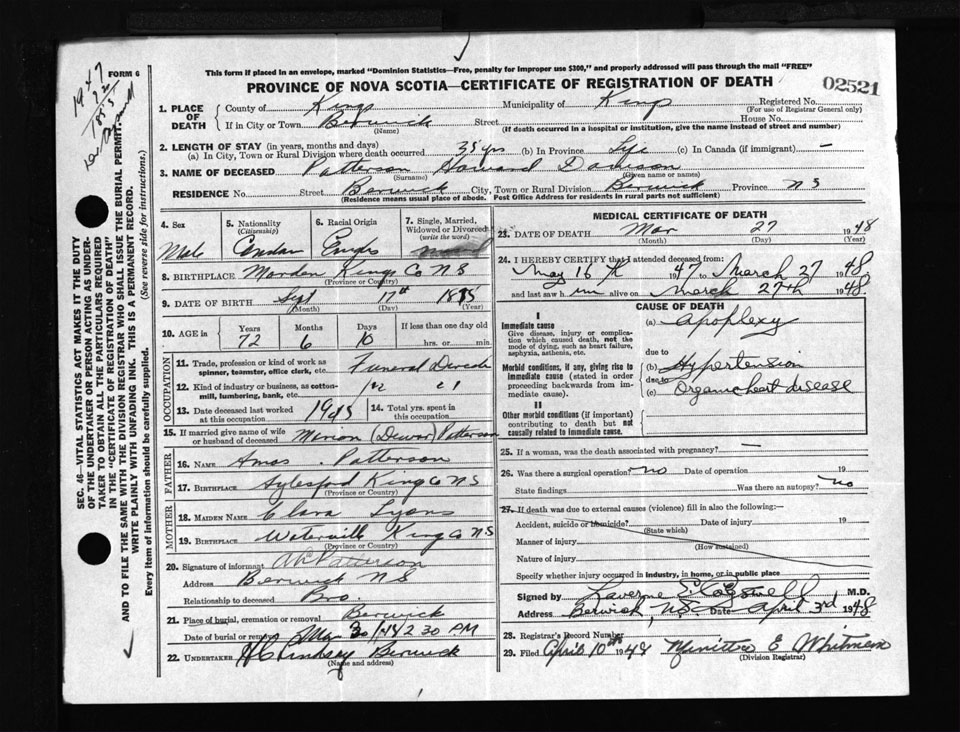 This form if placed in an envelope, marked "Dominion Statistics—Free, penalty for improper use $300," and properly addressed will pass through the mail "FREE"
FORM 6
PROVINCE OF NOVA SCOTIA—CERTIFICATE OF REGISTRATION OF DEATH
02521
1947
72
1875
1. PLACE OF DEATH
County of Kings Municipality of Kings Registered No.
(For use of Registrar General only)
If in City or Town Berwick Street House No.
(Name) (If death occurred in a hospital or institution, give the name instead of street and number)
2. LENGTH OF STAY (in years, months and days)
(a) In City, Town or Rural Division where death occurred 35 yrs (b) In Province Life (c) In Canada (if immigrant) —
3. NAME OF DECEASED Patterson Howard Davison
(Surname) (Given name or names)
RESIDENCE No. Street Berwick City, Town or Rural Division Berwick Province N S
(Residence means usual place of abode. Post Office Address for residents in rural parts not sufficient)
4. Sex
Male
5. Nationality
(Citizenship)
6. Racial Origin
7. Single, Married, Widowed or Divorced
(write the word)
8. BIRTHPLACE Morden Kings Co N S
(Province or Country)
9. DATE OF BIRTH Sept 17th 1875
(Month) (Day) (Year)
10. AGE in
Years Months Days If less than one day old
72 6 10 hrs. or min.
OCCUPATION
11. Trade, profession or kind of work as spinner, teamster, office clerk, etc. Funeral
12. Kind of industry or business, as cotton-mill, lumbering, bank, etc.
13. Date deceased last worked at this occupation 1945
14. Total yrs. spent in this occupation
15. If married give name of wife or husband of deceased Marion (Dewar) Patterson
FATHER
16. NAME Amos Patterson
17. BIRTHPLACE Aylesford King Co N S
(Province or Country)
MOTHER
18. MAIDEN NAME Clara Lyons
19. BIRTHPLACE Waterville King Co N S
(Province or Country)
20. Signature of informant Patterson
Address Berwick N S
Relationship to deceased Bro.
21. Place of burial, cremation or removal Berwick
Date of burial or removal Mar 30 2 30 PM
22. UNDERTAKER H C Lindsay Berwick
(Name and address)
MEDICAL CERTIFICATE OF DEATH
23. DATE OF DEATH Mar 27 1948
(Month) (Day) (Year)
24. I HEREBY CERTIFY that I attended deceased from:
May 16th 1947 to March 27 1948
and last saw h im alive on March 27th 1948
CAUSE OF DEATH
I
Immediate cause
Give disease, injury or complication which caused death, not the mode of dying, such as heart failure, asphyxia, asthenia, etc.
(a) Apoplexy
due to
Morbid conditions, if any, giving rise to immediate cause (stated in order proceeding backwards from immediate cause).
(b) Hypertension
due to
(c) Organic heart disease
II
Other morbid conditions (if important) contributing to death but not causally related to immediate cause.
25. If a woman, was the death associated with pregnancy? —
26. Was there a surgical operation? no Date of operation 19
State findings Was there an autopsy? no
27. If death was due to external causes (violence) fill in also the following:—
Accident, suicide or homicide? Date of injury 19
(State which)
Manner of injury
(How sustained)
Nature of injury
Specify whether injury occurred in industry, in home, or in public place
Signed by Laverne S. Cogswell M.D.
Address Berwick, N.S. Date April 3rd 1948
28. Registrar's Record Number
29. Filed April 10th 1948 E Whitman
(Division Registrar)
SEC. 46—VITAL STATISTICS ACT MAKES IT THE DUTY OF THE UNDERTAKER OR PERSON ACTING AS UNDERTAKER TO OBTAIN ALL THE PARTICULARS REQUIRED IN THE "CERTIFICATE OF REGISTRATION OF DEATH" AND TO FILE THE SAME WITH THE DIVISION REGISTRAR WHO SHALL ISSUE THE BURIAL PERMIT.
WRITE PLAINLY WITH UNFADING INK. THIS IS A PERMANENT RECORD.
Every item of information should be carefully supplied. (See reverse side for instructions.)